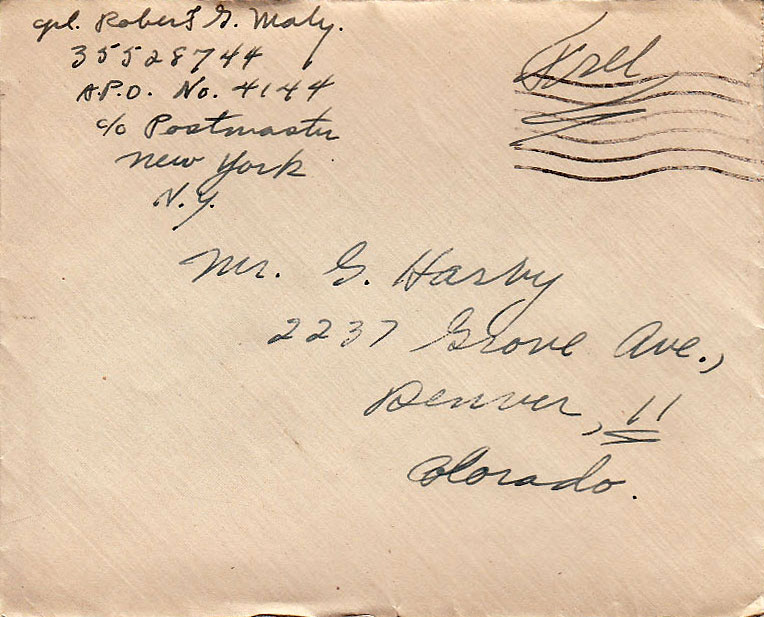 cpl. Robert G. Maly.
35528744
A.P.O. No. 4144
c/o Postmaster
New York
N.Y.
Free
Mr. G. Harby
2237 Grove Ave.,
Denver, 11
Colorado.